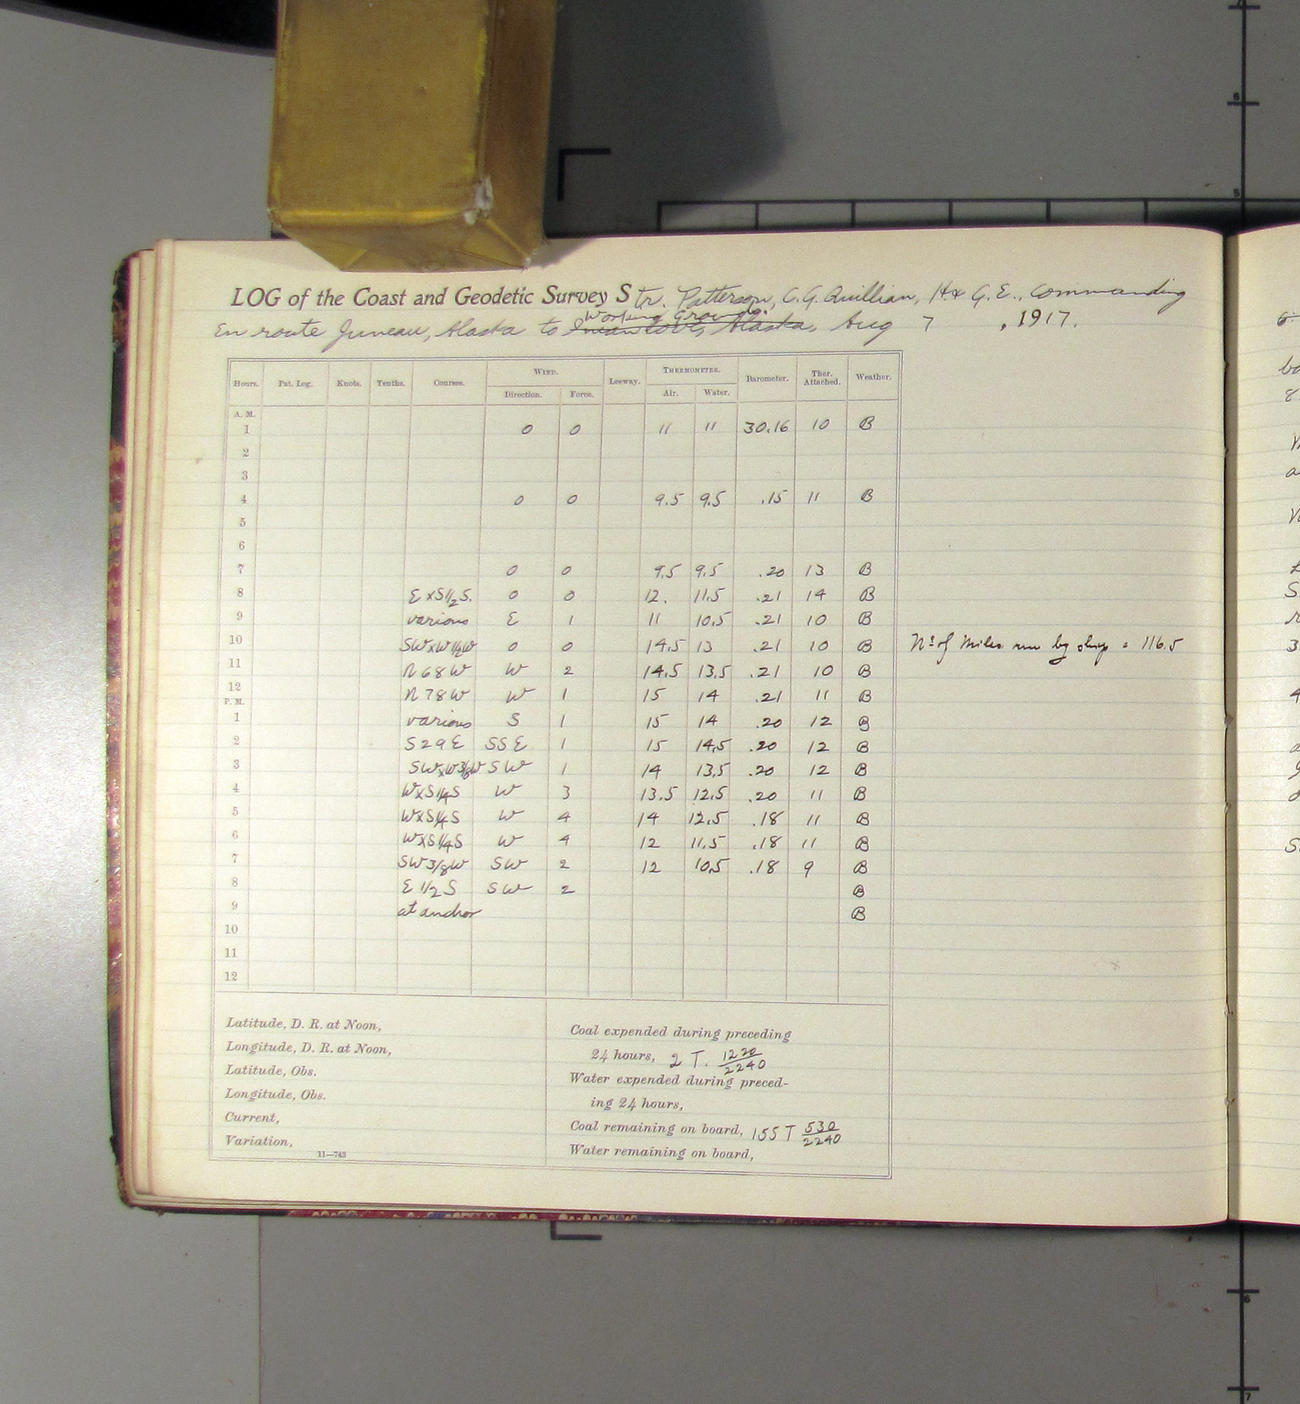 LOG of the Coast and Geodetic Survey Str. Patterson, C.G. Quillian, H. & G.E., Commanding
Working Grounds.
En route Juneau, Alaska to Alaska, Aug 7, 1917.
Hours. Pat. Log. Knots. Tenths. Courses. WIND. Leeway. THERMOMETER. Barometer. Ther. Attached. Weather.
Direction. Force. Air. Water.
A. M.
1 0 0 11 11 30.16 10 B
2
3
4 0 0 9.5 9.5 .15 11 B
5
6
7 0 0 9.5 9.5 .20 13 B
8 ExS1/2S. 0 0 12. 11.5 .21 14 B
9 various E 1 11 10.5 .21 10 B
10 SWxW1/2W 0 0 14.5 13 .21 10 B No of miles run by ship = 116.5
11 N68W W 2 14.5 13.5 .21 10 B
12 N78W W 1 15 14 .21 11 B
P. M.
1 various S 1 15 14 .20 12 B
2 S29E SSE 1 15 14.5 .20 12 B
3 SWxW3/8W SW 1 14 13.5 .20 12 B
4 WxS1/4S W 3 13.5 12.5 .20 11 B
5 WxS1/4S W 4 14 12.5 .18 11 B
6 WxS1/4S W 4 12 11.5 .18 11 B
7 SW3/8W SW 2 12 10.5 .18 9 B
8 E 1/2 S SW 2 B
9 at anchor B
10
11
12
Latitude, D. R. at Noon,
Longitude, D. R. at Noon,
Latitude, Obs.
Longitude, Obs.
Current,
Variation,
11—743
Coal expended during preceding
24 hours, 2 T. 1220/2240
Water expended during preced-
ing 24 hours,
Coal remaining on board, 155 T 530/2240
Water remaining on board,